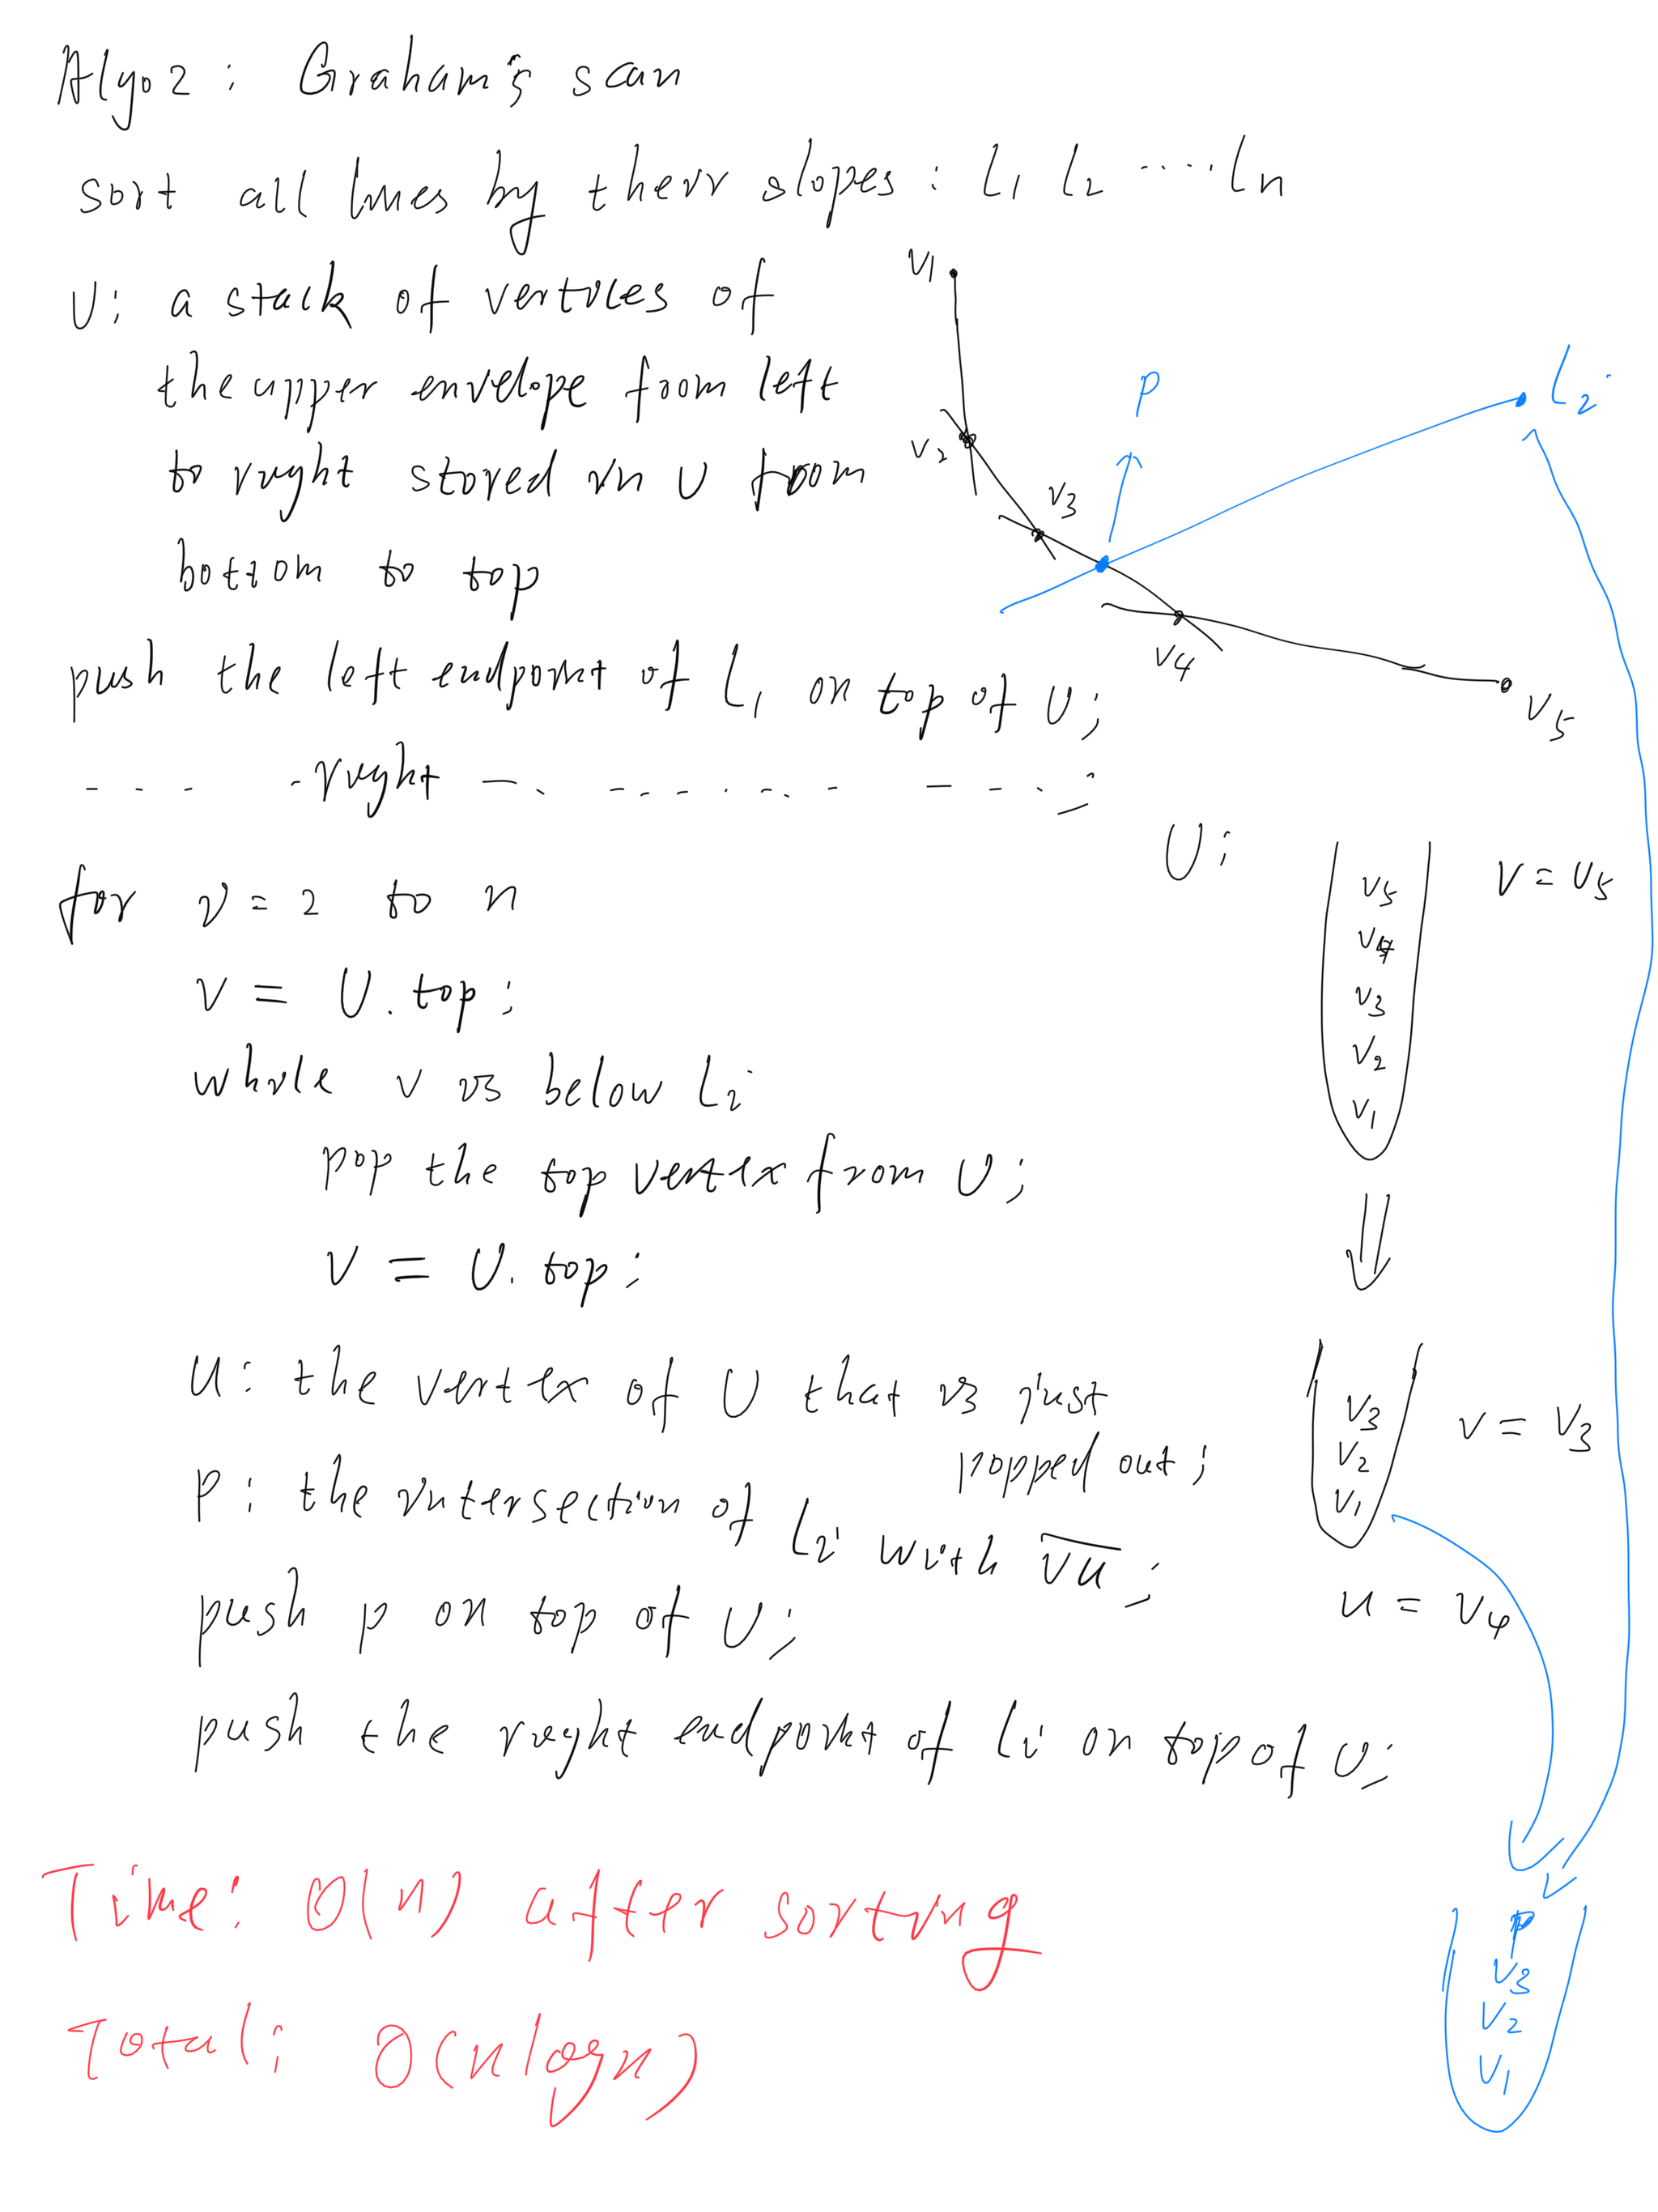 Algo 2: Graham's scan
sort all lines by their slopes: L1 L2 ..... Ln
U: a stack of vertices of
the upper envelope from left
to right stored in U from
bottom to top
push the left endpoint of L1 on top of U;
--- -right --. ------- ---- ;
for i = 2 to n
v = U.top;
while v is below Li
pop the top vertex from U;
v = U.top;
u: the vertex of U that is just
popped out;
p: the intersection of Li with vu;
push p on top of U;
push the right endpoint of Li on top of U;
Time: O(n) after sorting
Total: O(n log n)
v1
v2
v3
v4
v5
p
Li
U:
v5
v4
v3
v2
v1
v = v5
v3
v2
v1
v = v3
u = v4
p
v3
v2
v1